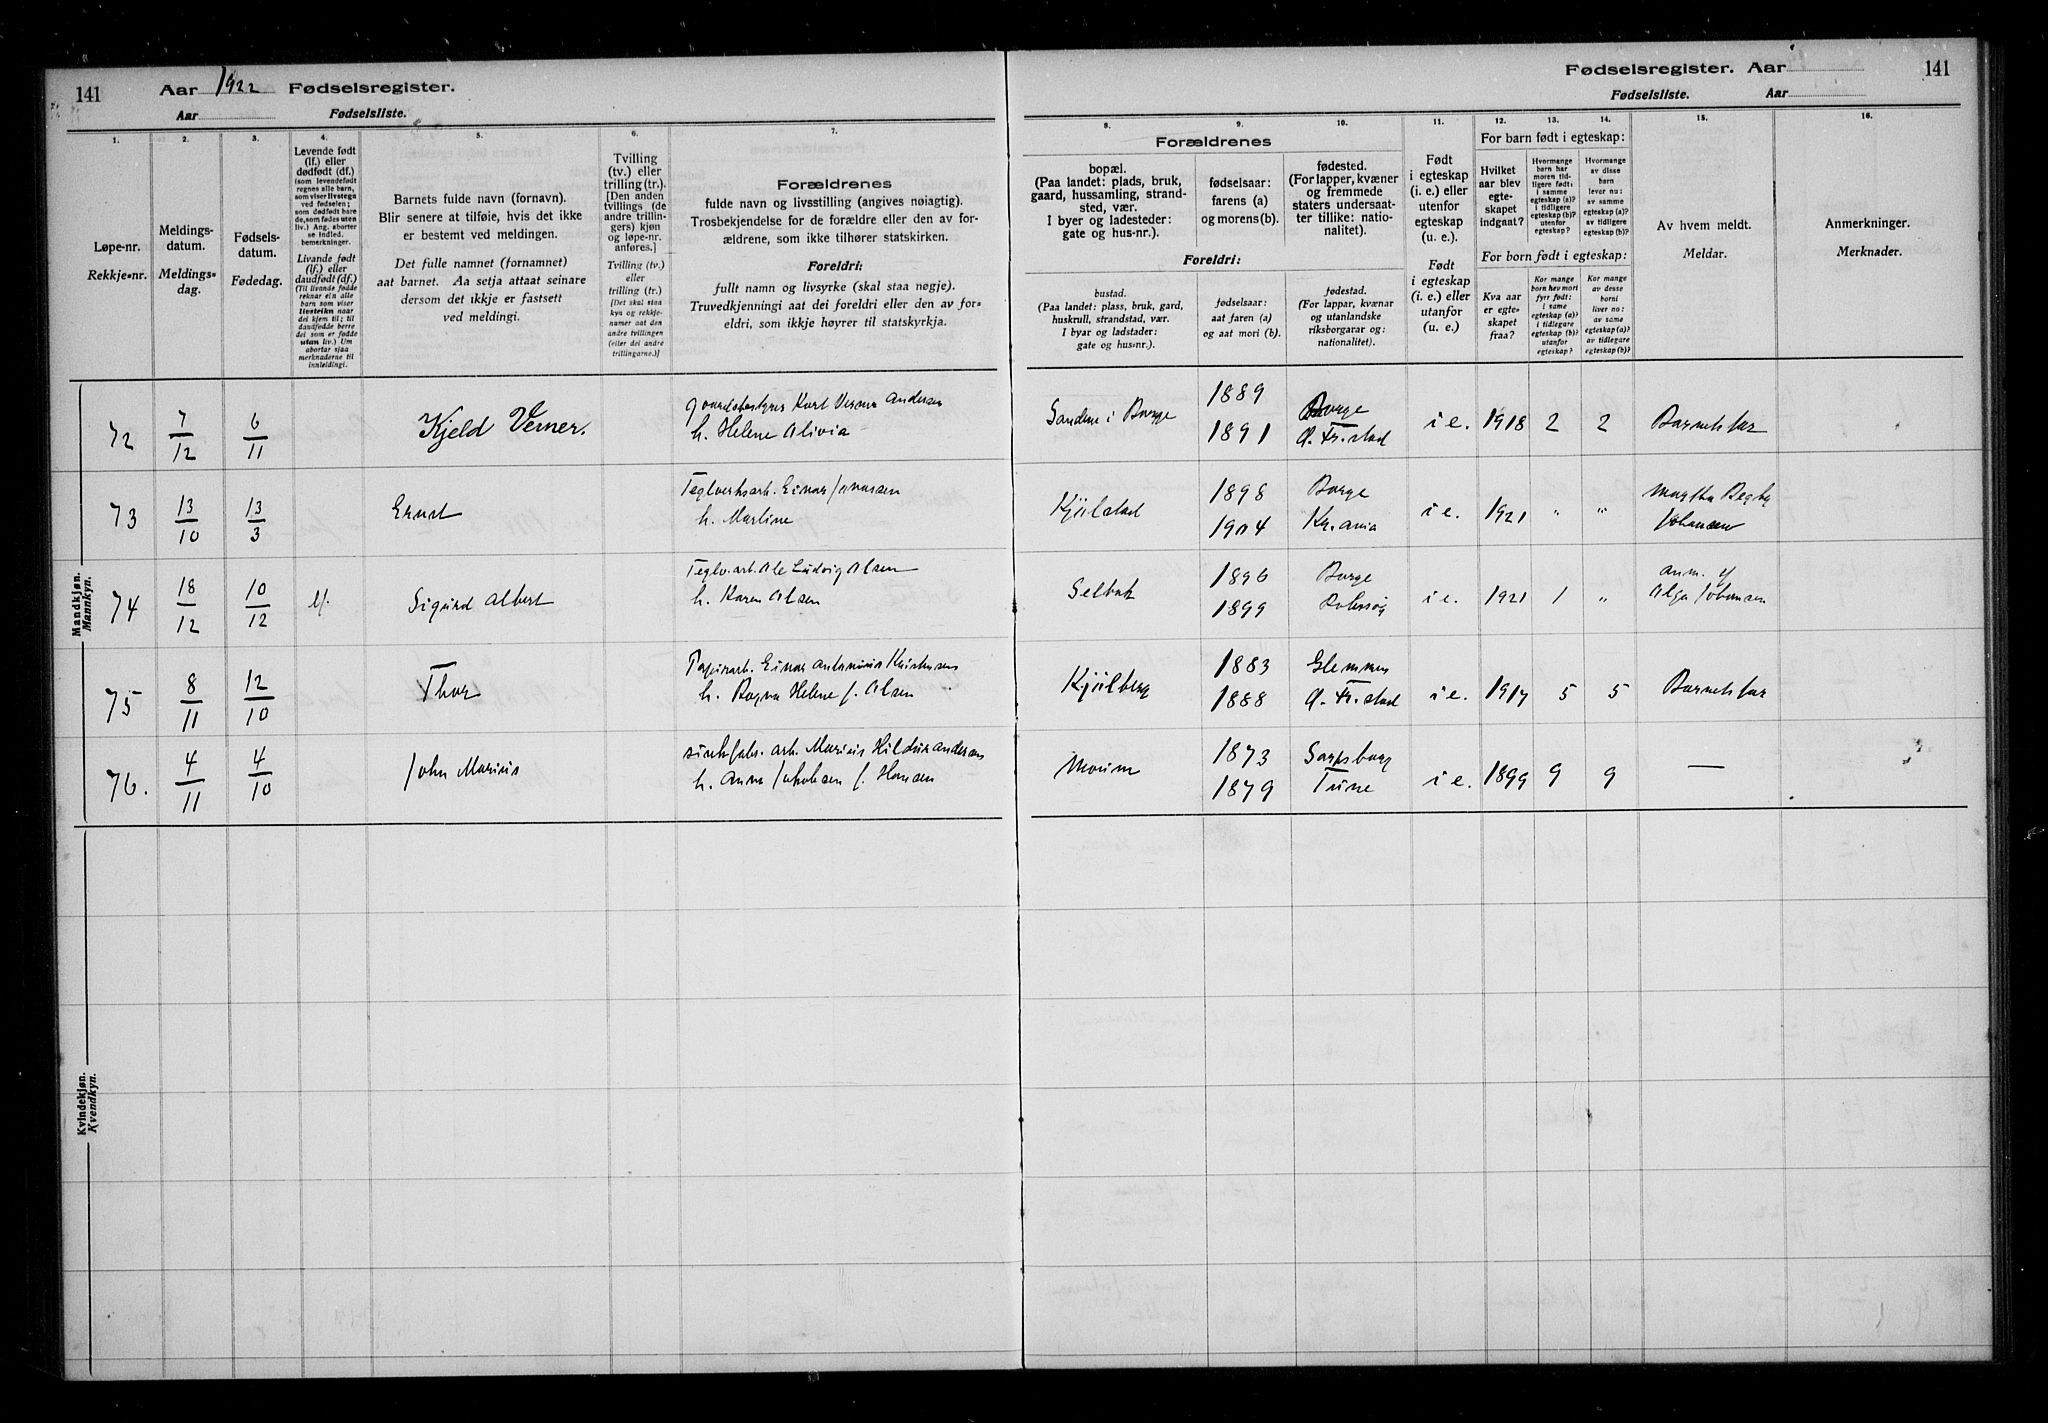 141 Aar 1922 Fødselsregister.
Aar Fødselsliste.
Fødselsregister. Aar 141
Fødselsliste. Aar
1. 2. 3. 4. 5. 6. 7.
Løpe-nr.
Rekkje-nr.
Meldings-
datum.
Meldings-
dag.
Fødsels-
datum.
Fødedag.
Levende født
(lf.) eller
dødfødt (df.)
(som levendefødt
regnes alle barn,
som viser livstegn
ved fødselen;
som dødfødt bare
de, som fødes uten
liv.) Ang. aborter
se indled.
bemerkninger.
Livande født
(lf.) eller
daudfødt (df.)
(Til livande fødde
reknar ein alle
born som viser
livsteikn naar
dei kjem til; til
daudfødde berre
dei som er fødde
utan liv.) Um
abortar sjaa
merknaderne til
innleidingi.
Barnets fulde navn (fornavn).
Blir senere at tilføie, hvis det ikke
er bestemt ved meldingen.
Det fulle namnet (fornamnet)
aat barnet. Aa setja attaat seinare
dersom det ikkje er fastsett
ved meldingi.
Tvilling
(tv.) eller
trilling (tr.).
[Den anden
tvillings (de
andre trillin-
gers) kjøn
og løpe-nr.
anføres.]
Tvilling (tv.)
eller
trilling (tr.)
[Det skal staa
kyn og rekkje-
numer aat den
andre tvillingen
(eller dei andre
trillingarne.)]
Forældrenes
fulde navn og livsstilling (angives nøiagtig).
Trosbekjendelse for de forældre eller den av for-
ældrene, som ikke tilhører statskirken.
Foreldri:
fullt namn og livsyrke (skal staa nøgje).
Truvedkjenningi aat dei foreldri eller den av for-
eldri, som ikkje høyrer til statskyrkja.
8. 9. 10. 11. 12. 13. 14. 15. 16.
Forældrenes
bopæl.
(Paa landet: plads, bruk,
gaard, hussamling, strand-
sted, vær.
I byer og ladesteder:
gate og hus-nr.).
fødselsaar:
farens (a)
og morens (b).
fødested.
(For lapper, kvæner
og fremmede
staters undersaat-
ter tillike: natio-
nalitet).
Foreldri:
bustad.
(Paa landet: plass, bruk, gard,
huskrull, strandstad, vær.
I byar og ladstader:
gate og hus-nr.).
fødselsaar:
aat faren (a)
og aat mori (b).
fødestad.
(For lappar, kvænar
og utanlandske
riksborgarar og:
nationalitet).
Født
i egteskap
(i. e.) eller
utenfor
egteskap
(u. e.).
Født
i egteskap
(i. e.) eller
utanfor
(u. e.)
For barn født i egteskap:
Hvilket
aar blev
egte-
skapet
indgaat?
Hvormange
barn har
moren tid-
ligere født:
i samme
egteskap (a)?
i tidligere
egteskap (b)?
utenfor
egteskap?
Hvormange
av disse
barn
lever nu:
av samme
egteskap (a)?
av tidligere
egteskap (b)?
For born født i egteskap:
Kva aar
er egte-
skapet
fraa?
Kor mange
born hev mori
fyrr født:
i same
egteskap (a)?
i tidlegare
egteskap (b)?
utanfor
egteskap?
Kor mange
av desse
borni
liver no:
av same
egteskap (a)?
av tidlegare
egteskap (b)?
Av hvem meldt.
Meldar.
Anmerkninger.
Merknader.
Mandkjøn.
Mannkyn.
72 7/12 6/11 Kjeld Verner. gaardsbestyrer Karl Verner Andersen
h. Helene Olivia
Sanden i Borge 1889 Borge i e. 1918 2 2 Barnets far
1891 G. Fr.stad
73 13/10 13/3 Ernst Teglverksarb. Einar Jonassen
h. Martine
Kjölstad 1898 Borge i e. 1921 " " Martha Begby
1904 Kr.ania Johansen
74 18/12 10/12 lf. Sigurd Albert Teglv.arb. Ole Ludvig Olsen
h. Karen Olsen
Selbak 1896 Borge i e. 1921 1 " anm. y
1899 Rolvsøy Olga Johansen
75 8/11 12/10 Thor Papirarb. Einar Antonius Kristensen
h. Ragna Helene f. Olsen
Kjölberg 1883 Glemmen i e. 1917 5 5 Barnets far
1888 G. Fr.stad
76. 4/11 4/10 John Marius sinkfabr. arb. Marius Hildur Andersen
h. Anna Jakobsen f. Hansen
Moum 1873 Sarpsborg i e. 1899 9 9 —
1879 Tune
Kvindekjøn.
Kvendkyn.